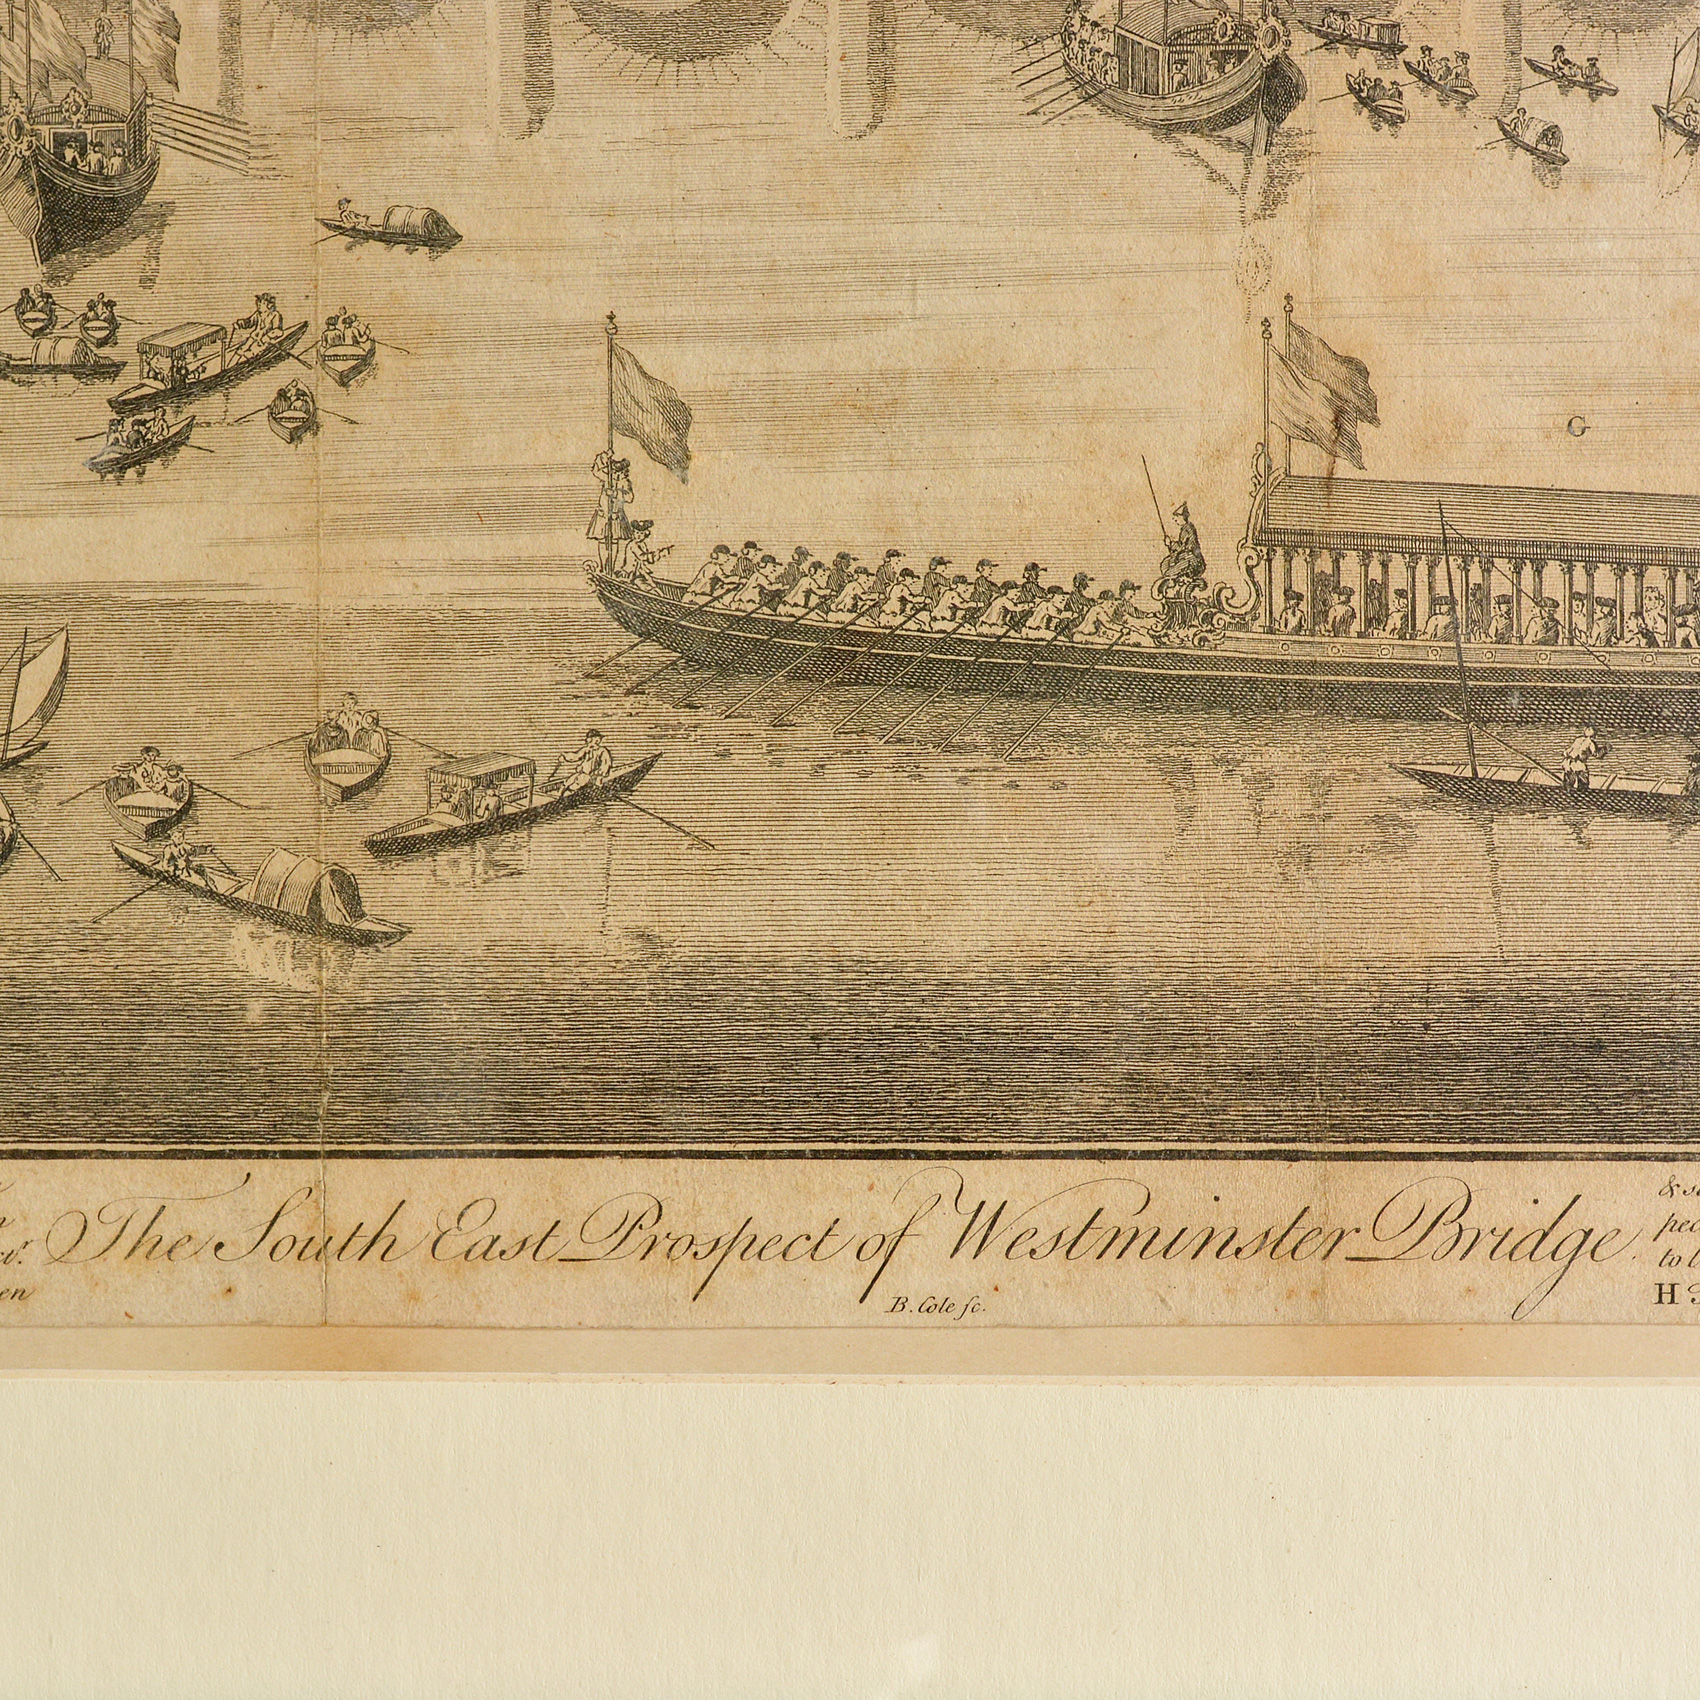 G
The South East Prospect of Westminster Bridge.
B. Cole sc.
to
H